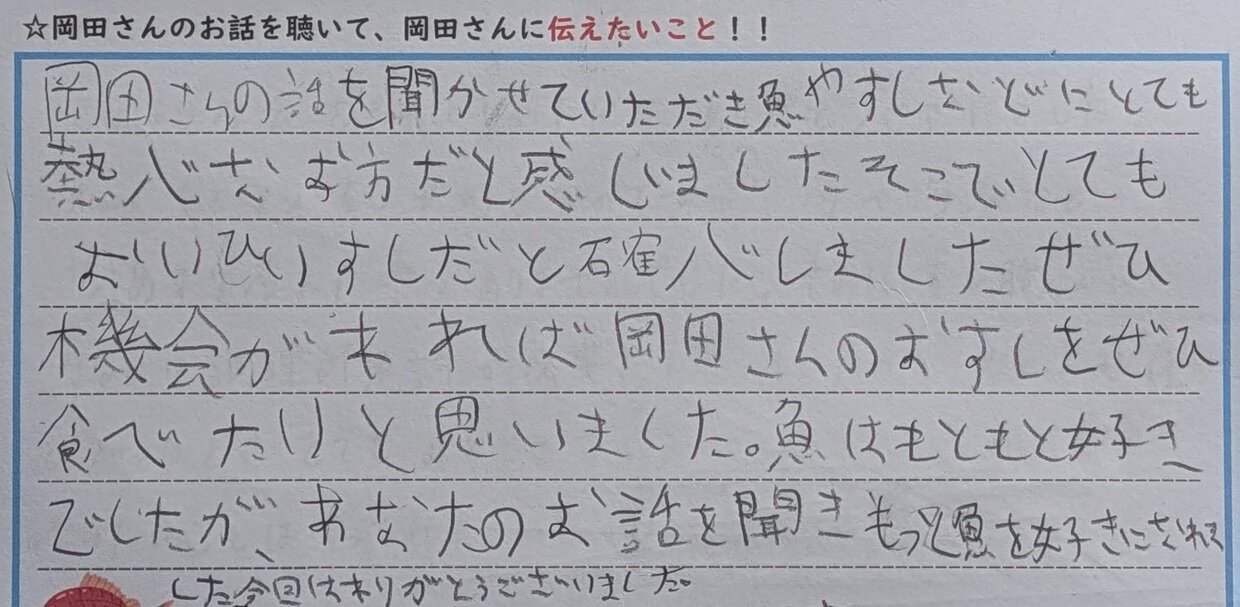 ☆岡田さんのお話を聴いて、岡田さんに伝えたいこと！！
岡田さんの話を聞かせていただき魚やすしなどにとても
熱心なお方だと感じましたそこでとても
おいしいすしだと確心しましたぜひ
機会があれば岡田さんのおすしをぜひ
食べたいと思いました。魚はもともと好き
でしたが、あなたのお話を聞きもっと魚を好きになれま
した今回はありがとうございました。